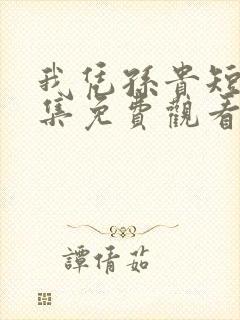 我凭孫貴短
集免費觀看
譚倩茹